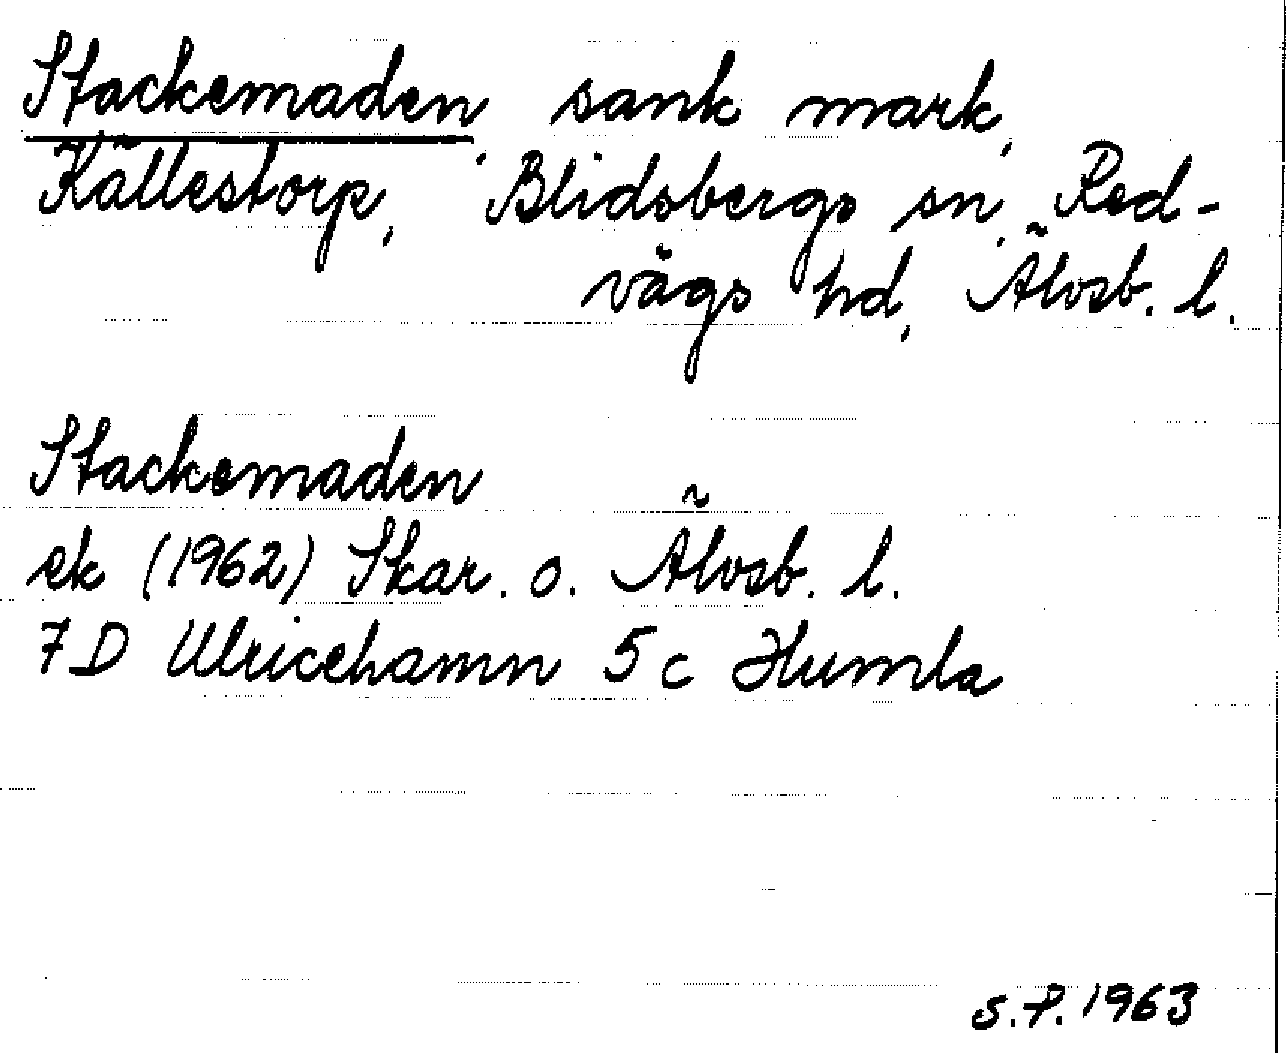 Stackemaden, sank mark,
Källestorp, Blidsbergs sn, Red-
vägs hd, Älvsb. l.
Stackemaden
ek (1962) Skar. o. Älvsb. l.
7D Ulricehamn 5c Humla
S.P. 1963